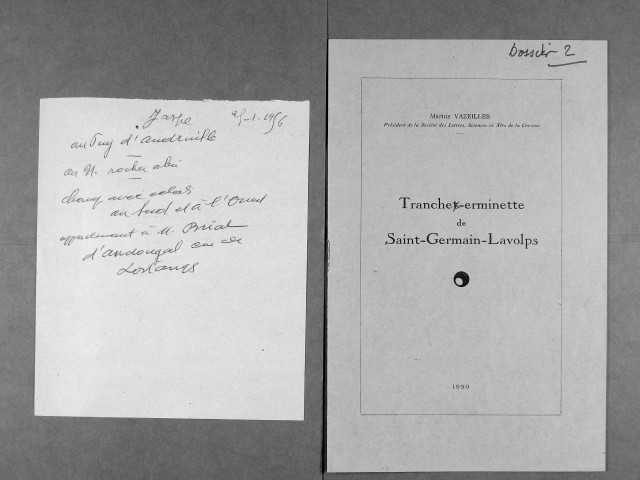 Jaspe 25-1-1956
au Puy d'
au N. rocher abri
champ avec
au Sud et à l'Ouest
appartenant à M.
d'
dossier 2
Marius VAZEILLES
Président de la Société des Lettres, Sciences et Arts de la Corrèze
Tranchet-erminette
de
Saint-Germain-Lavolps
1959